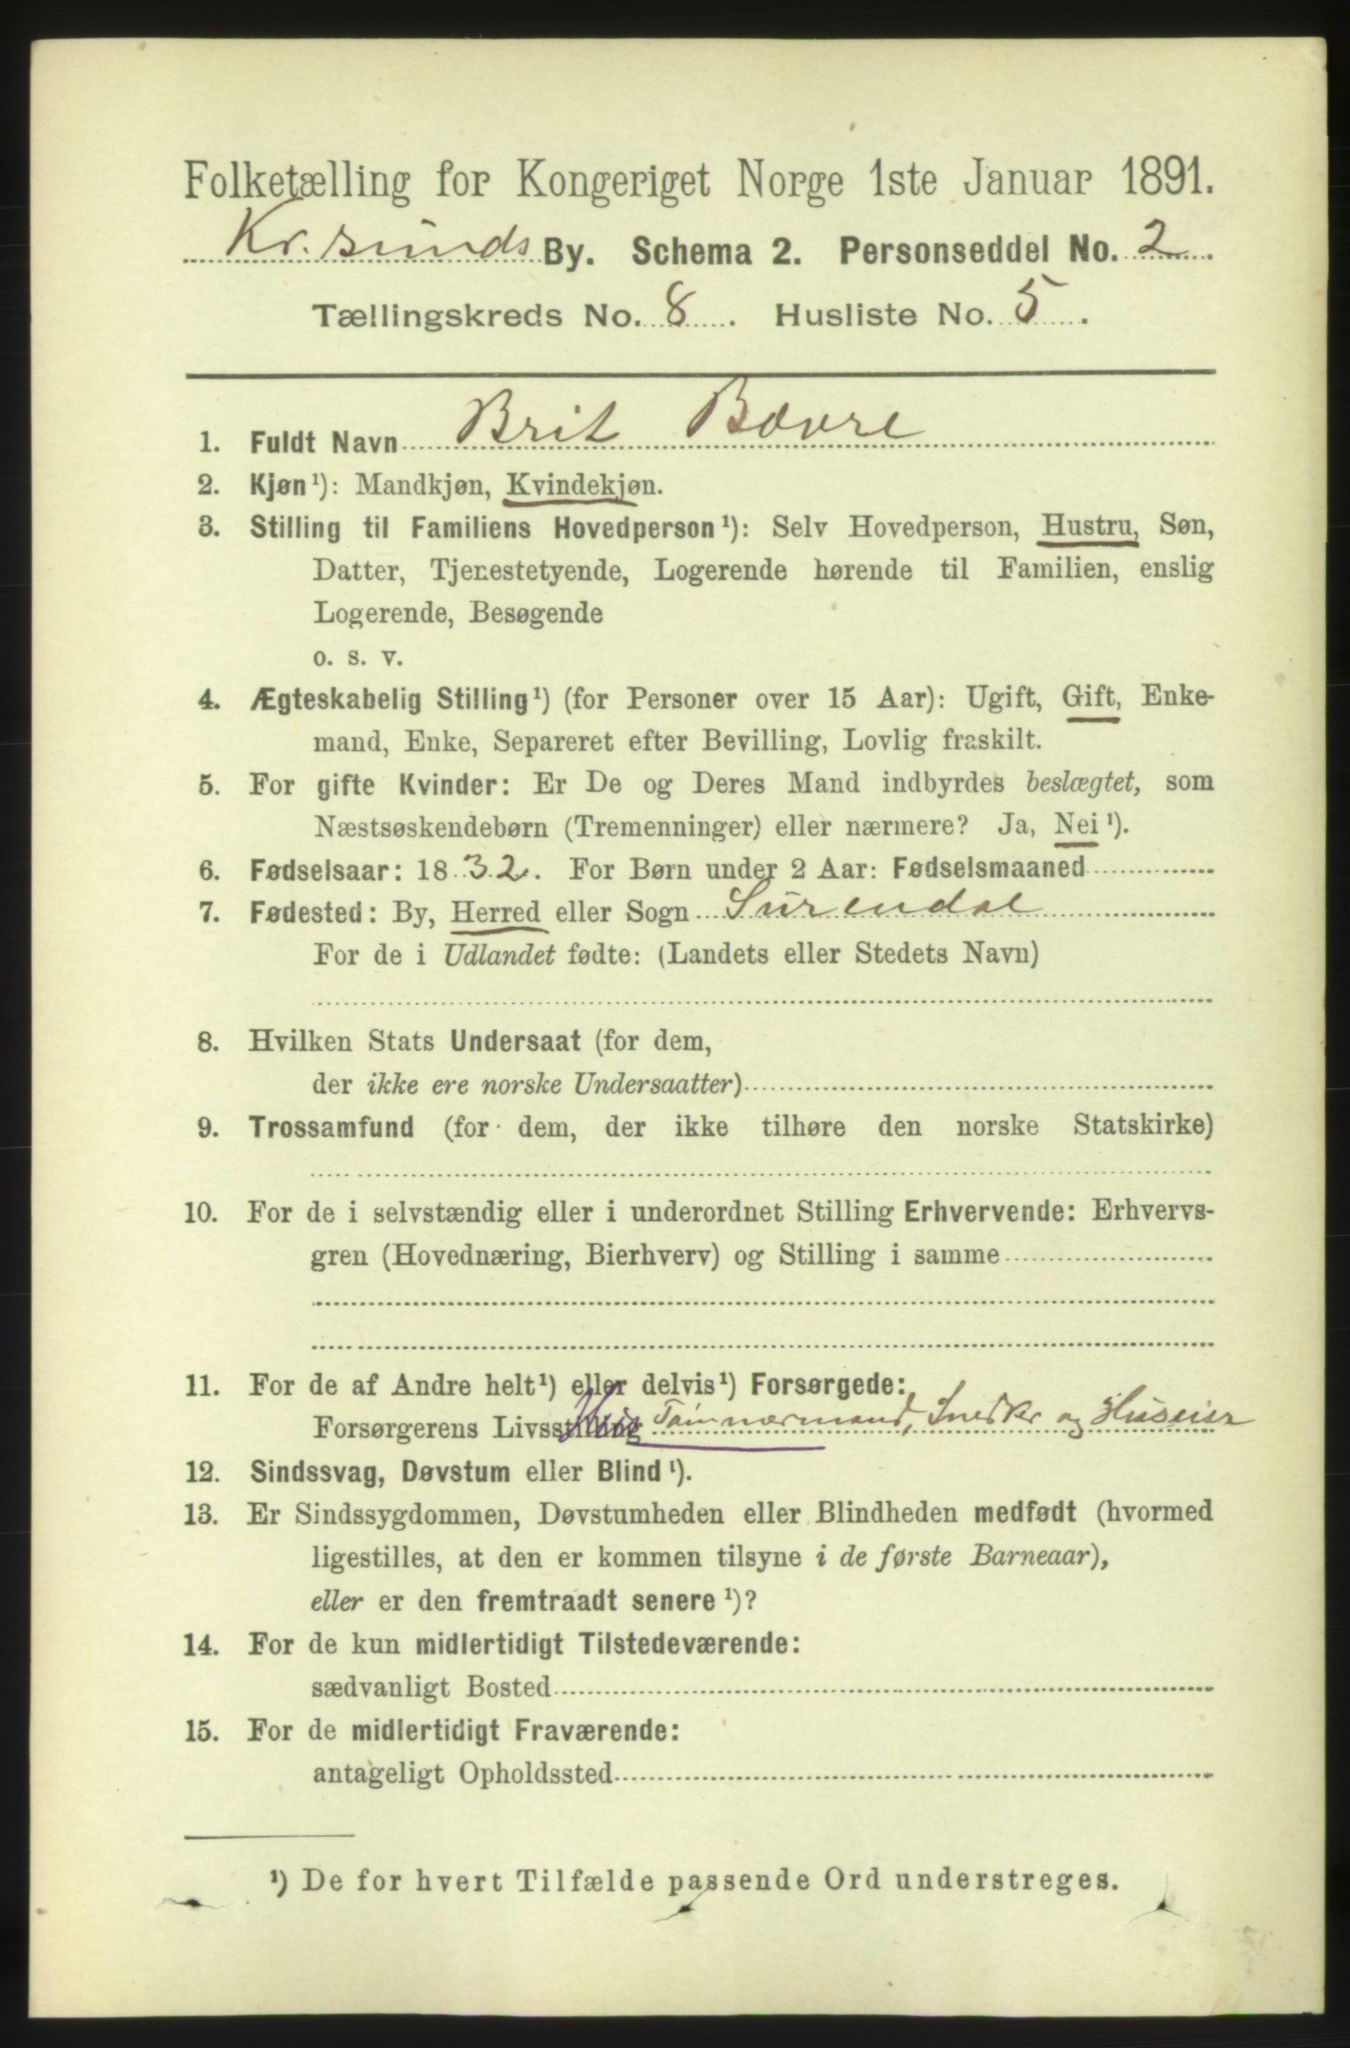 Folketælling for Kongeriget Norge 1ste Januar 1891.
Kr.sunds By. Schema 2. Personseddel No. 2.
Tællingskreds No. 8. Husliste No. 5.
1. Fuldt Navn Brit Bævre
2. Kjøn¹): Mandkjøn, Kvindekjøn.
3. Stilling til Familiens Hovedperson¹): Selv Hovedperson, Hustru, Søn,
Datter, Tjenestetyende, Logerende hørende til Familien, enslig
Logerende, Besøgende
o. s. v.
4. Ægteskabelig Stilling¹) (for Personer over 15 Aar): Ugift, Gift, Enke-
mand, Enke, Separeret efter Bevilling, Lovlig fraskilt.
5. For gifte Kvinder: Er De og Deres Mand indbyrdes beslægtet, som
Næstsøskendebørn (Tremenninger) eller nærmere? Ja, Nei¹).
6. Fødselsaar: 1832. For Børn under 2 Aar: Fødselsmaaned
7. Fødested: By, Herred eller Sogn Surendal
For de i Udlandet fødte: (Landets eller Stedets Navn)
8. Hvilken Stats Undersaat (for dem,
der ikke ere norske Undersaatter)
9. Trossamfund (for dem, der ikke tilhøre den norske Statskirke)
10. For de i selvstændig eller i underordnet Stilling Erhvervende: Erhvervs-
gren (Hovednæring, Bierhverv) og Stilling i samme
11. For de af Andre helt¹) eller delvis¹) Forsørgede:
Forsørgerens Livsstilling Tømmermand, Snedkr og Huseier
12. Sindssvag, Døvstum eller Blind¹).
13. Er Sindssygdommen, Døvstumheden eller Blindheden medfødt (hvormed
ligestilles, at den er kommen tilsyne i de første Barneaar),
eller er den fremtraadt senere¹)?
14. For de kun midlertidigt Tilstedeværende:
sædvanligt Bosted
15. For de midlertidigt Fraværende:
antageligt Opholdssted
¹) De for hvert Tilfælde passende Ord understreges.